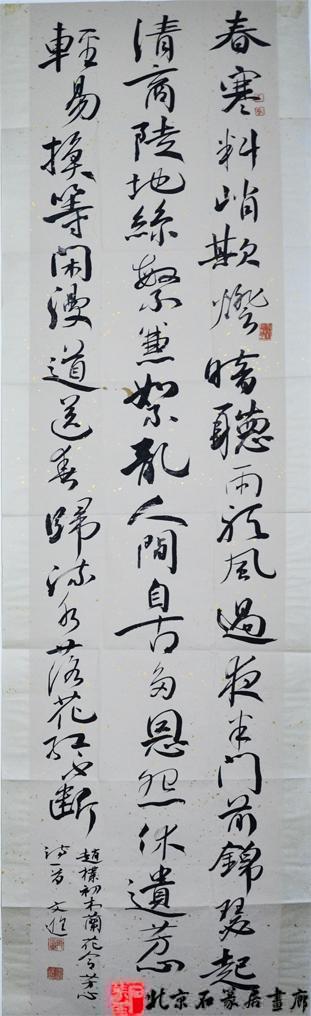 春寒料峭欺燈暗聽雨聽風過夜半門前錦瑟起
清商陡地絲繁兼絮亂人間自古多恩怨休遣芳心
輕易換等閑漫道送春歸流水落花紅不斷
趙樸初木蘭花令芳心
詩一首 文
北京石篆居畫廊